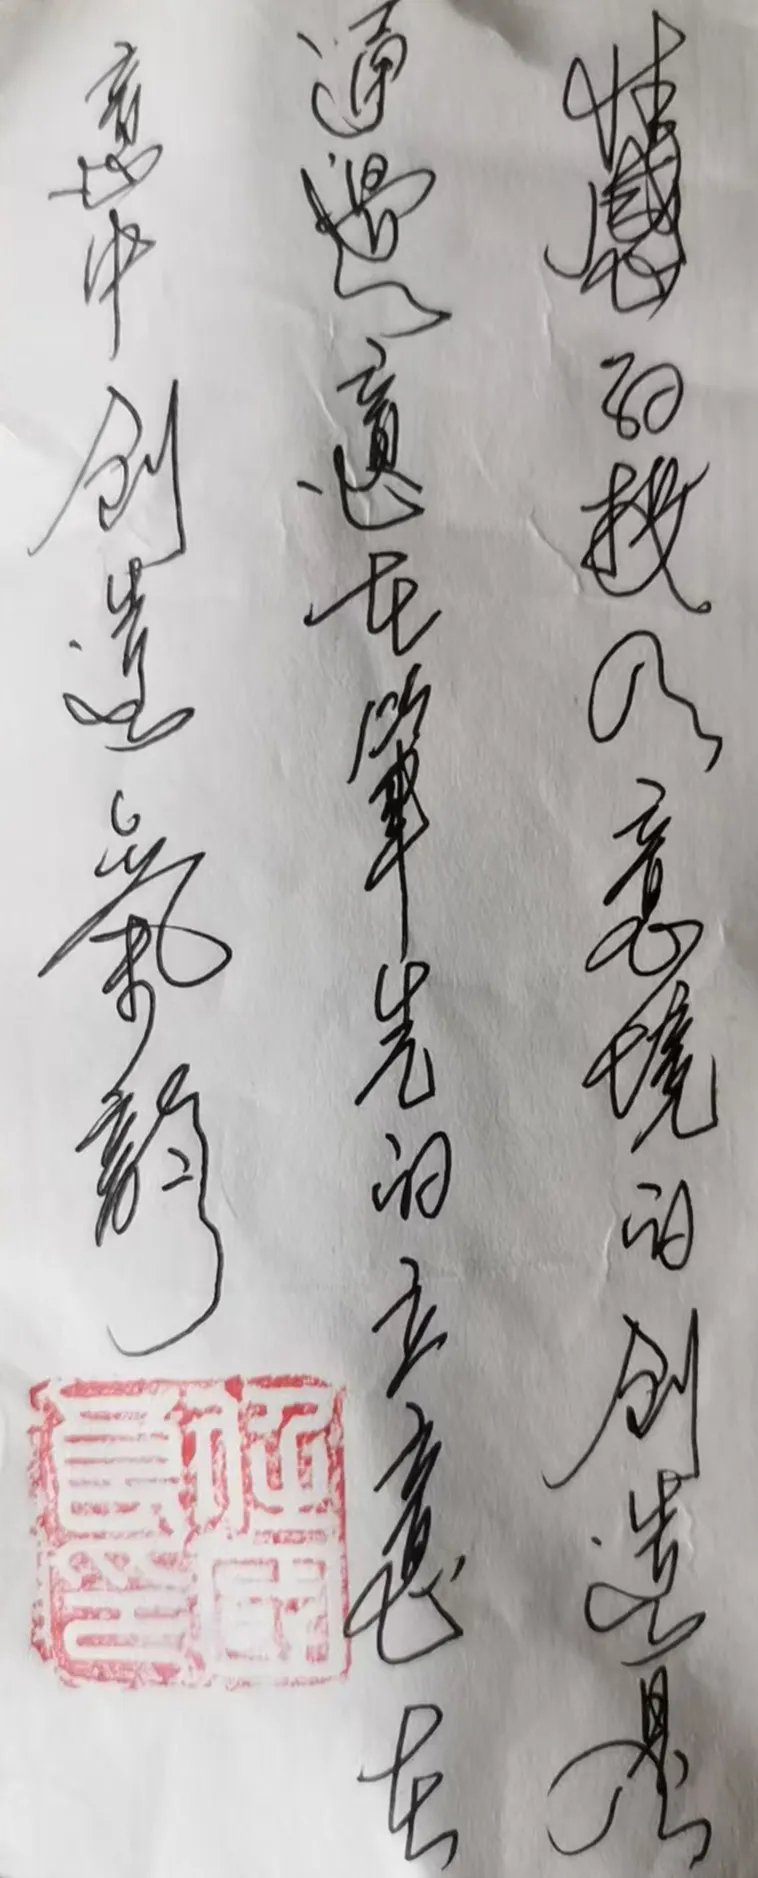 情感的投入意境的创造是
通过意在笔先的立意在
意中创造氣韵